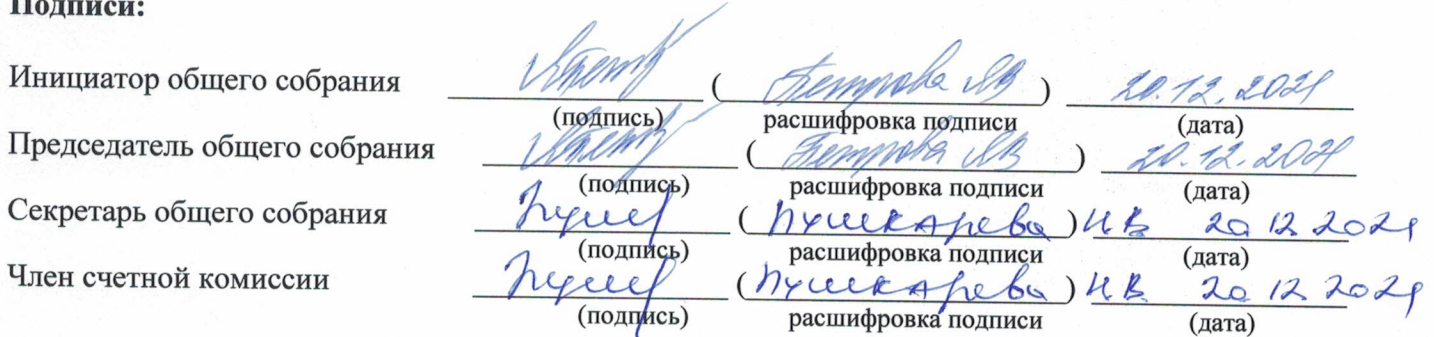 Подписи:
Инициатор общего собрания (Петрова ЯВ) 20.12.2021
(подпись) расшифровка подписи (дата)
Председатель общего собрания (Петрова ЯВ) 20.12.2021
(подпись) расшифровка подписи (дата)
Секретарь общего собрания (Пушкарева) Н В 20 12 2021
(подпись) расшифровка подписи (дата)
Член счетной комиссии (Пушкарева) Н В 20 12 2021
(подпись) расшифровка подписи (дата)